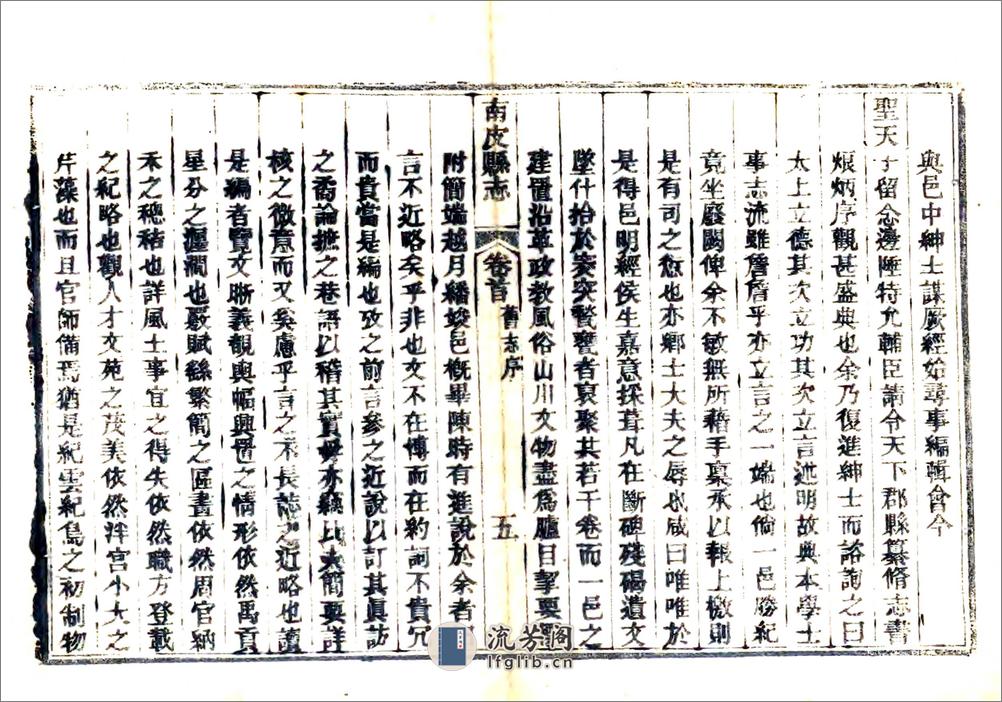 與邑中紳士謀厥經始尋事編輯會今
聖天子留念邊陲特允輔臣請令天下郡縣纂脩志書
烺炳序觀甚盛典也余乃復進紳士而諮詢之曰
太上立德其次立功其次立言述明故典本學士
事志流雖詹詹乎亦立言之一端也倘一邑勝紀
竟坐廢闕俾余不敏無所藉手稾承以報上檄則
是有司之愆也亦鄉士大夫之辱也咸曰唯唯於
是得邑明經侯生嘉意探葺凡在斷碑殘碣遺文
墜什拾於穾突瞽瞽者裒聚其若干卷而一邑之
建置沿革政教風俗山川文物盡爲臚目挈要
南皮縣志
卷首
舊志序
五
附簡端越月繙竣邑槪畢陳時有進說於余者
言不近略矣乎非也文不在博而在約詞不貴冗
而貴當是編也攷之前言參之近說以訂其眞訪
之喬論摭之巷語以稽其實毋亦竊比大簡要詳
核之微意而又奚慮乎言之不長誌之近略也讀
是編者覽文晰義觀輿幅興置之情形依然禹貢
星分之瀍澗也嚴賦絲繁簡之區畫依然周官納
禾之穗秸也詳風土事宜之得失依然職方登載
之紀略也觀人才文苑之茂美依然泮宮小大之
芹藻也而且官師備焉猶是紀雲紀鳥之初制物
流芳閣
lfglib.cn